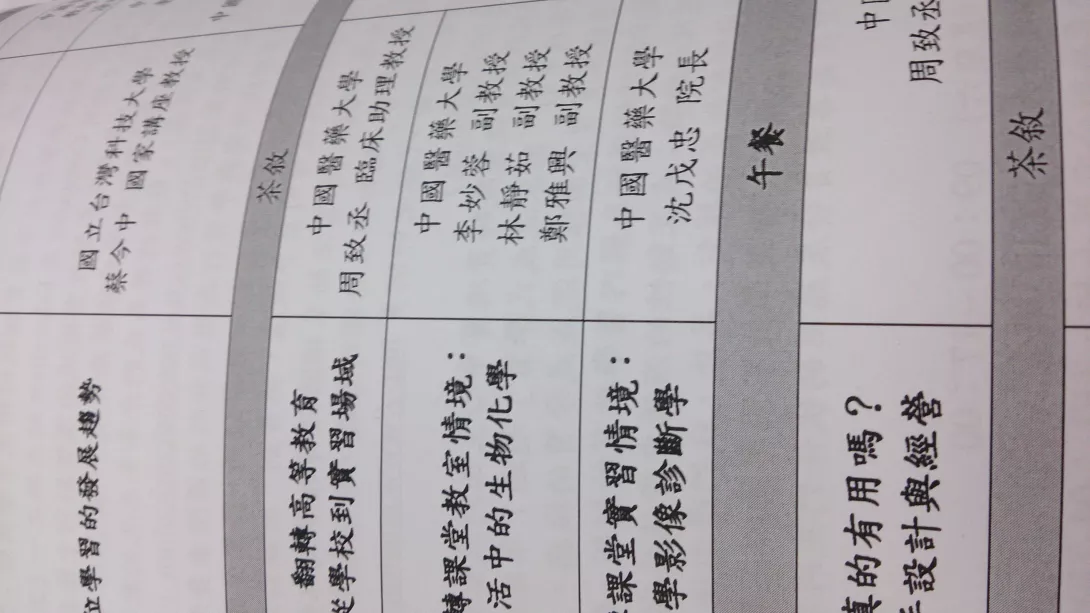 位學習的發展趨勢
國立台灣科技大學
蔡今中 國家講座教授
茶敘
翻轉高等教育
從學校到實習場域
中國醫藥大學
周致丞 臨床助理教授
轉課堂教室情境：
活中的生物化學
中國醫藥大學
李妙蓉 副教授
林靜茹 副教授
鄭雅興 副教授
課堂實習情境：
學影像診斷學
中國醫藥大學
沈戊忠 院長
午餐
真的有用嗎？
設計與經營
中
周致丞
茶敘